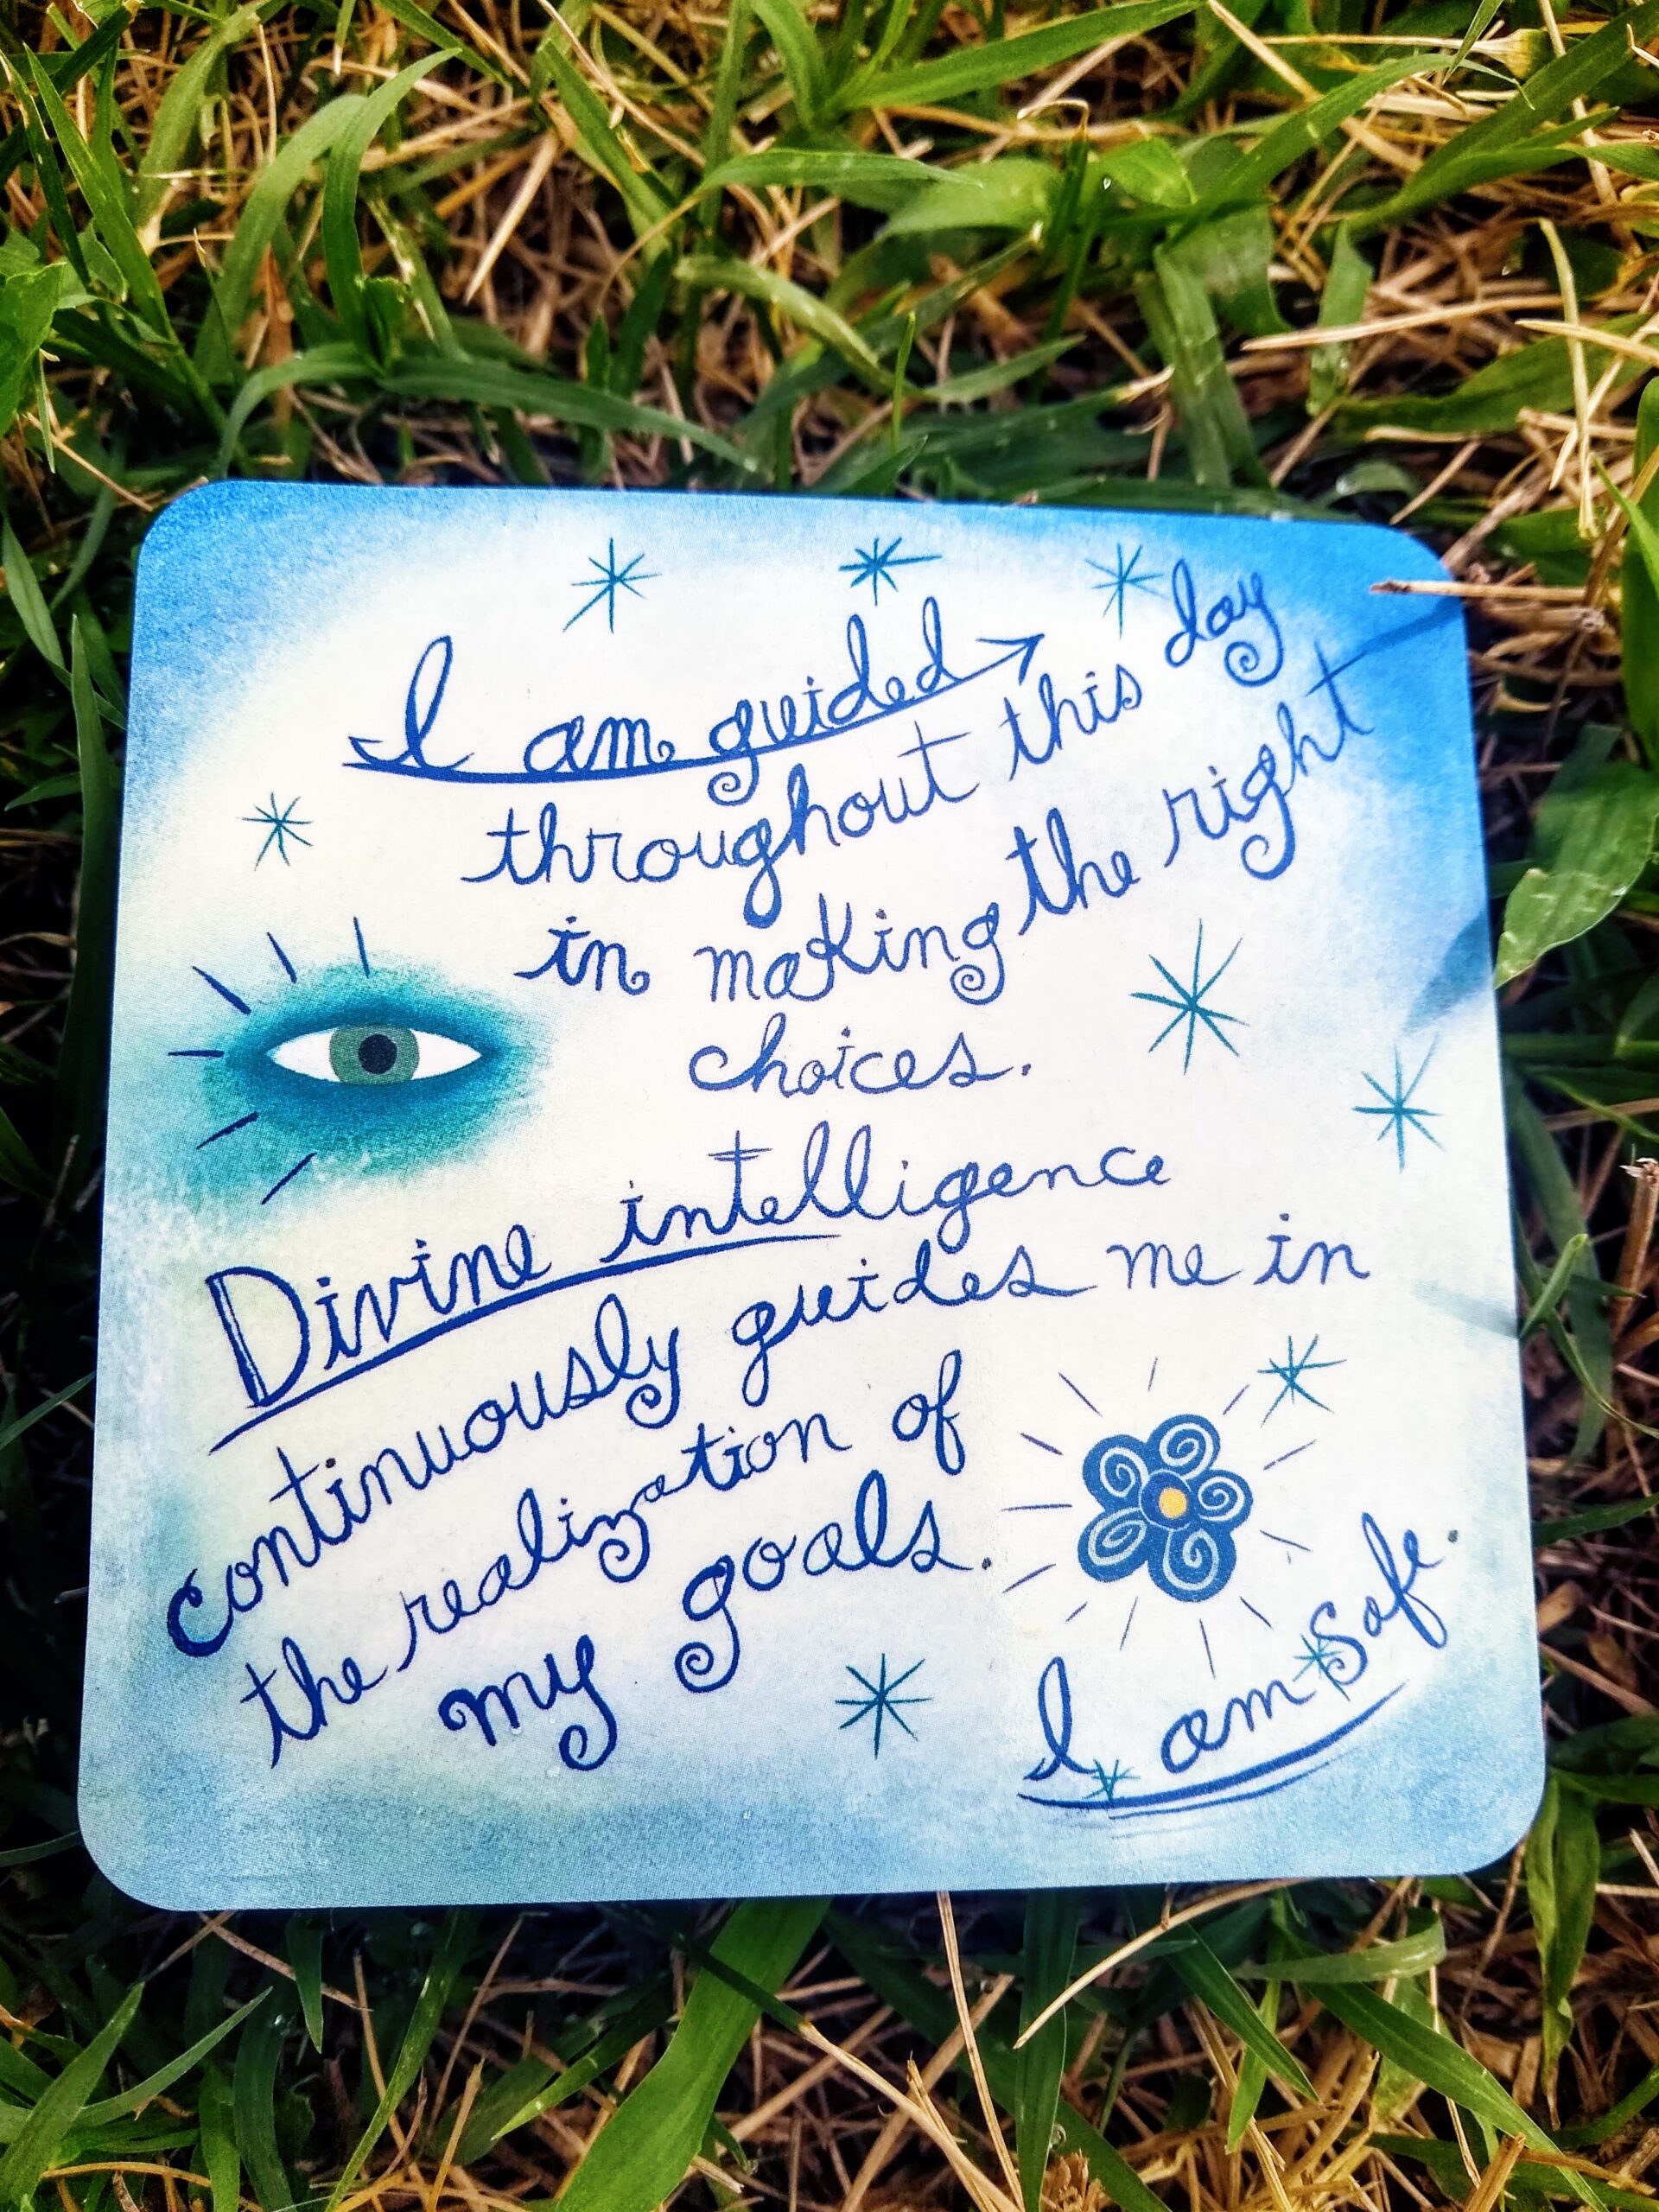 I am guided
throughout this day
in making the right
choices.
Divine intelligence
continuously guides me in
the realization of
my goals.
I am safe.